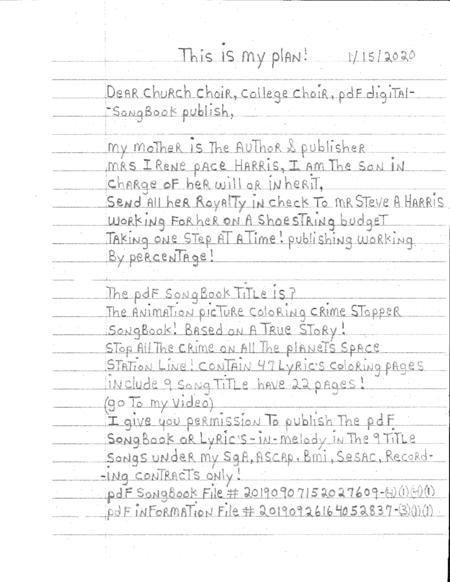 This is my plan! 1/15/2020
Dear Church Choir, College Choir, pdf digital-
-Songbook publish,
my mother is the Author & publisher
mrs Irene pace Harris, I am the son in
charge of her will or inherit,
Send all her Royalty in check to mr Steve A Harris
working for her on a shoestring budget
Taking one step at a time! publishing working
By percentage!
The pdf songbook title is?
The Animation picture coloring crime stopper
songbook! Based on a true story!
Stop all the crime on all the planets space
station line! contain 47 Lyric's coloring pages
include 9 song title have 22 pages!
(go to my video)
I give you permission to publish the pdf
songbook or Lyric's-in-melody in the 9 title
songs under my SgA, ASCAp. Bmi, Sesac, Record-
-ing contracts only!
pdf songbook File # 20190907152027609-(4)(1)(4)(1)
pdf information File # 20190926164052837-(3)(1)(1)